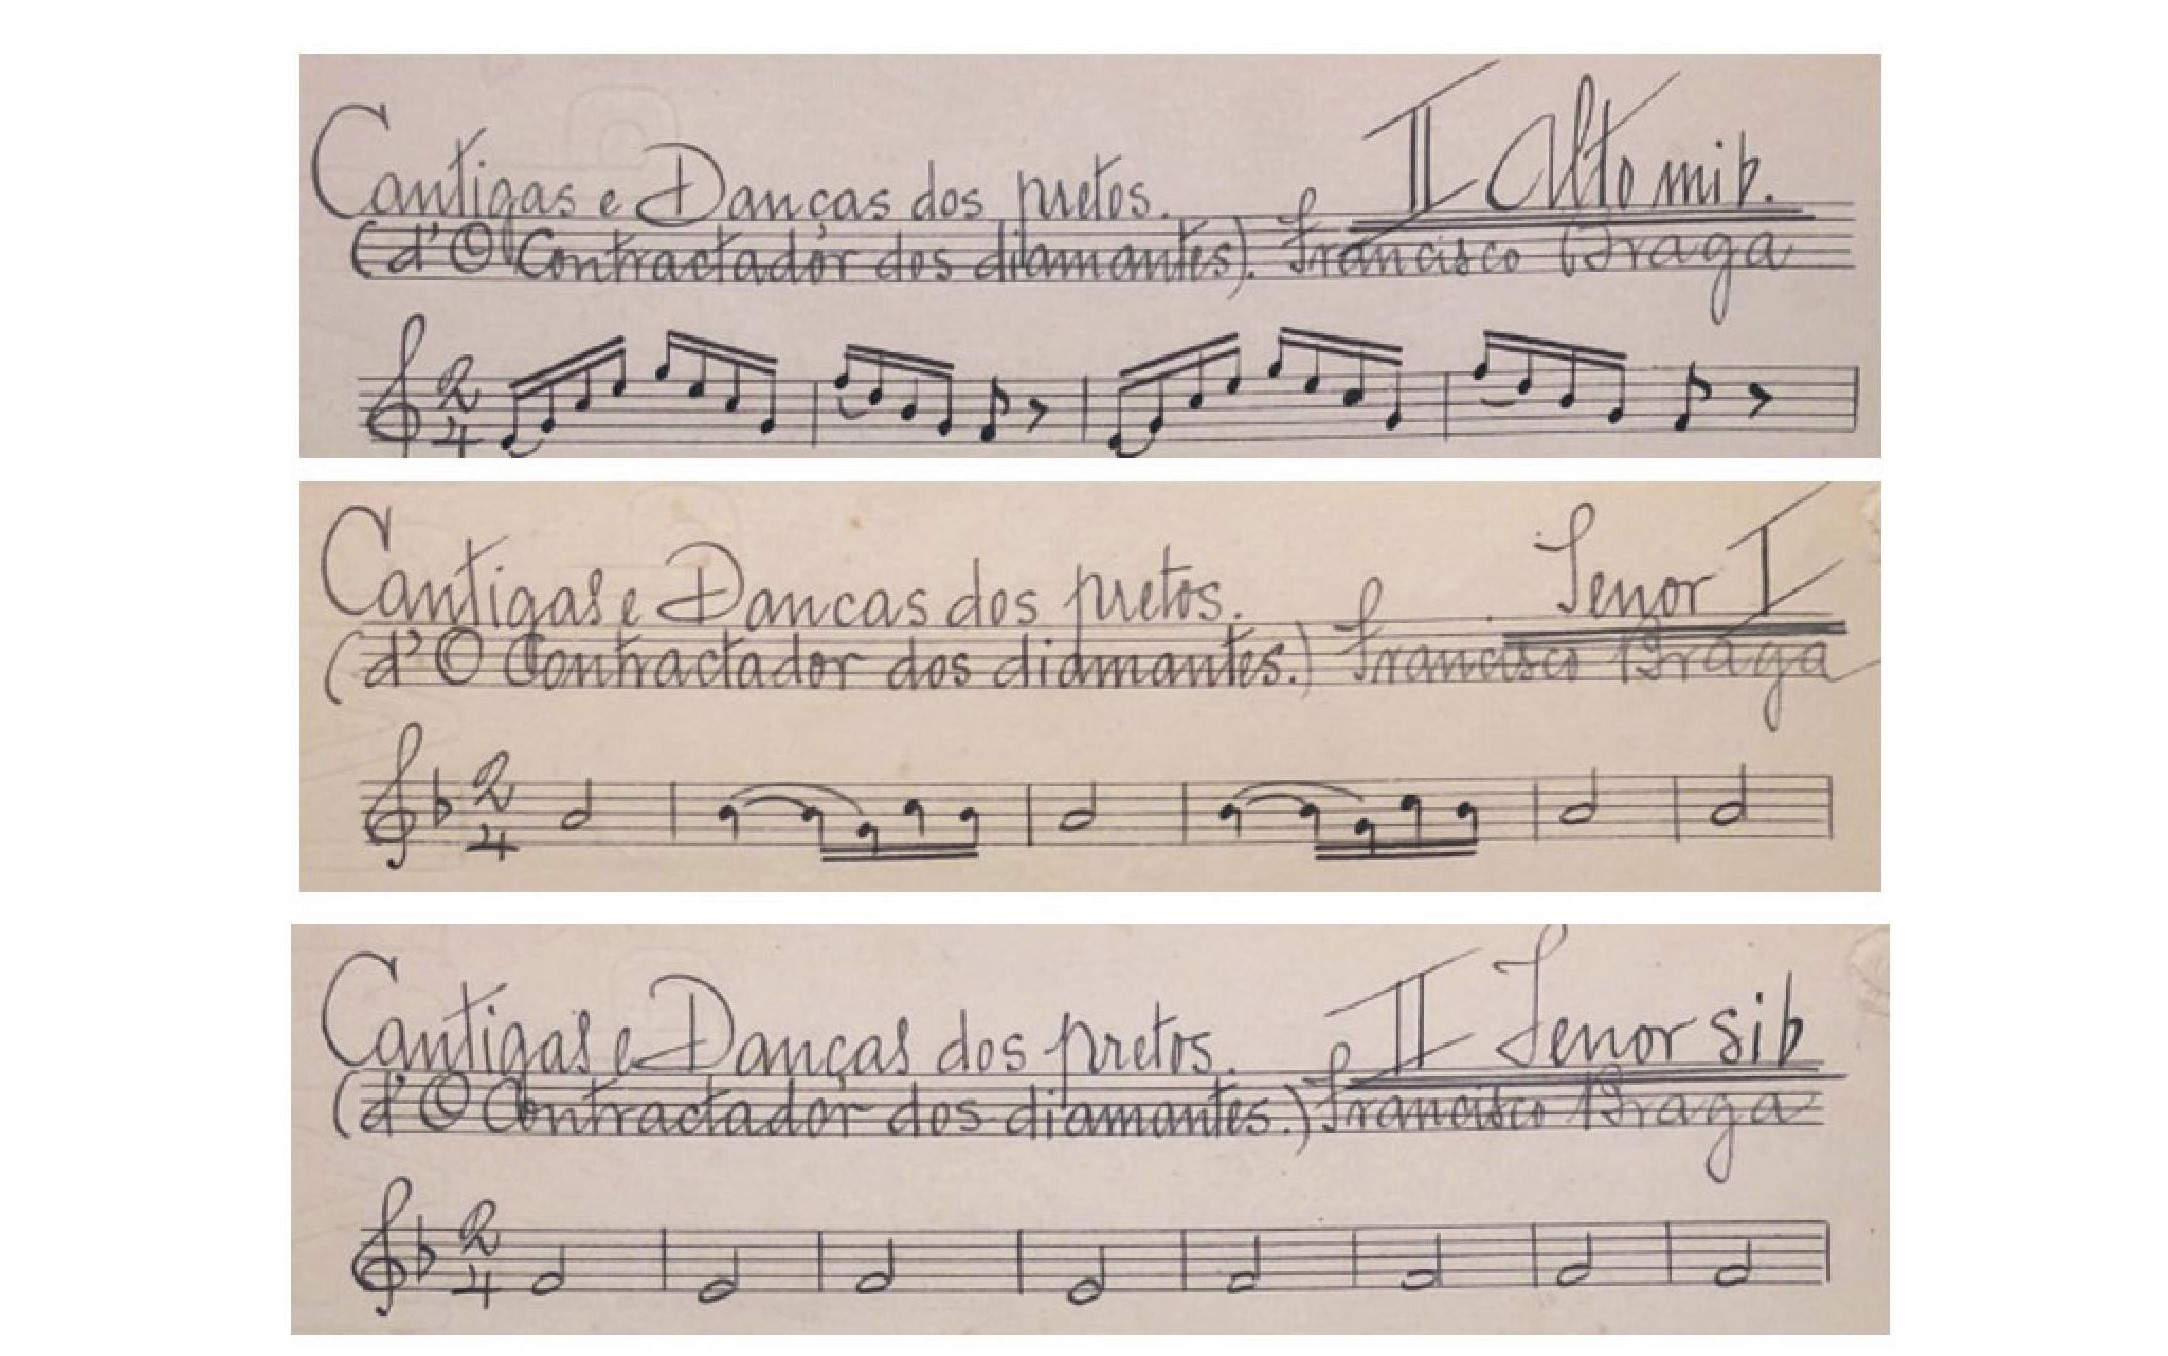 Cantigas e Danças dos pretos. II Alto mib.
(d'O Contractador dos diamantes). Francisco Braga
2
4
Cantigas e Dancas dos pretos. Tenor I
(d'O Contractador dos diamantes.) Francisco Braga
2
4
Cantigas e Danças dos pretos. II Tenor sib
(d'O Contractador dos diamantes.) Francisco Braga
2
4